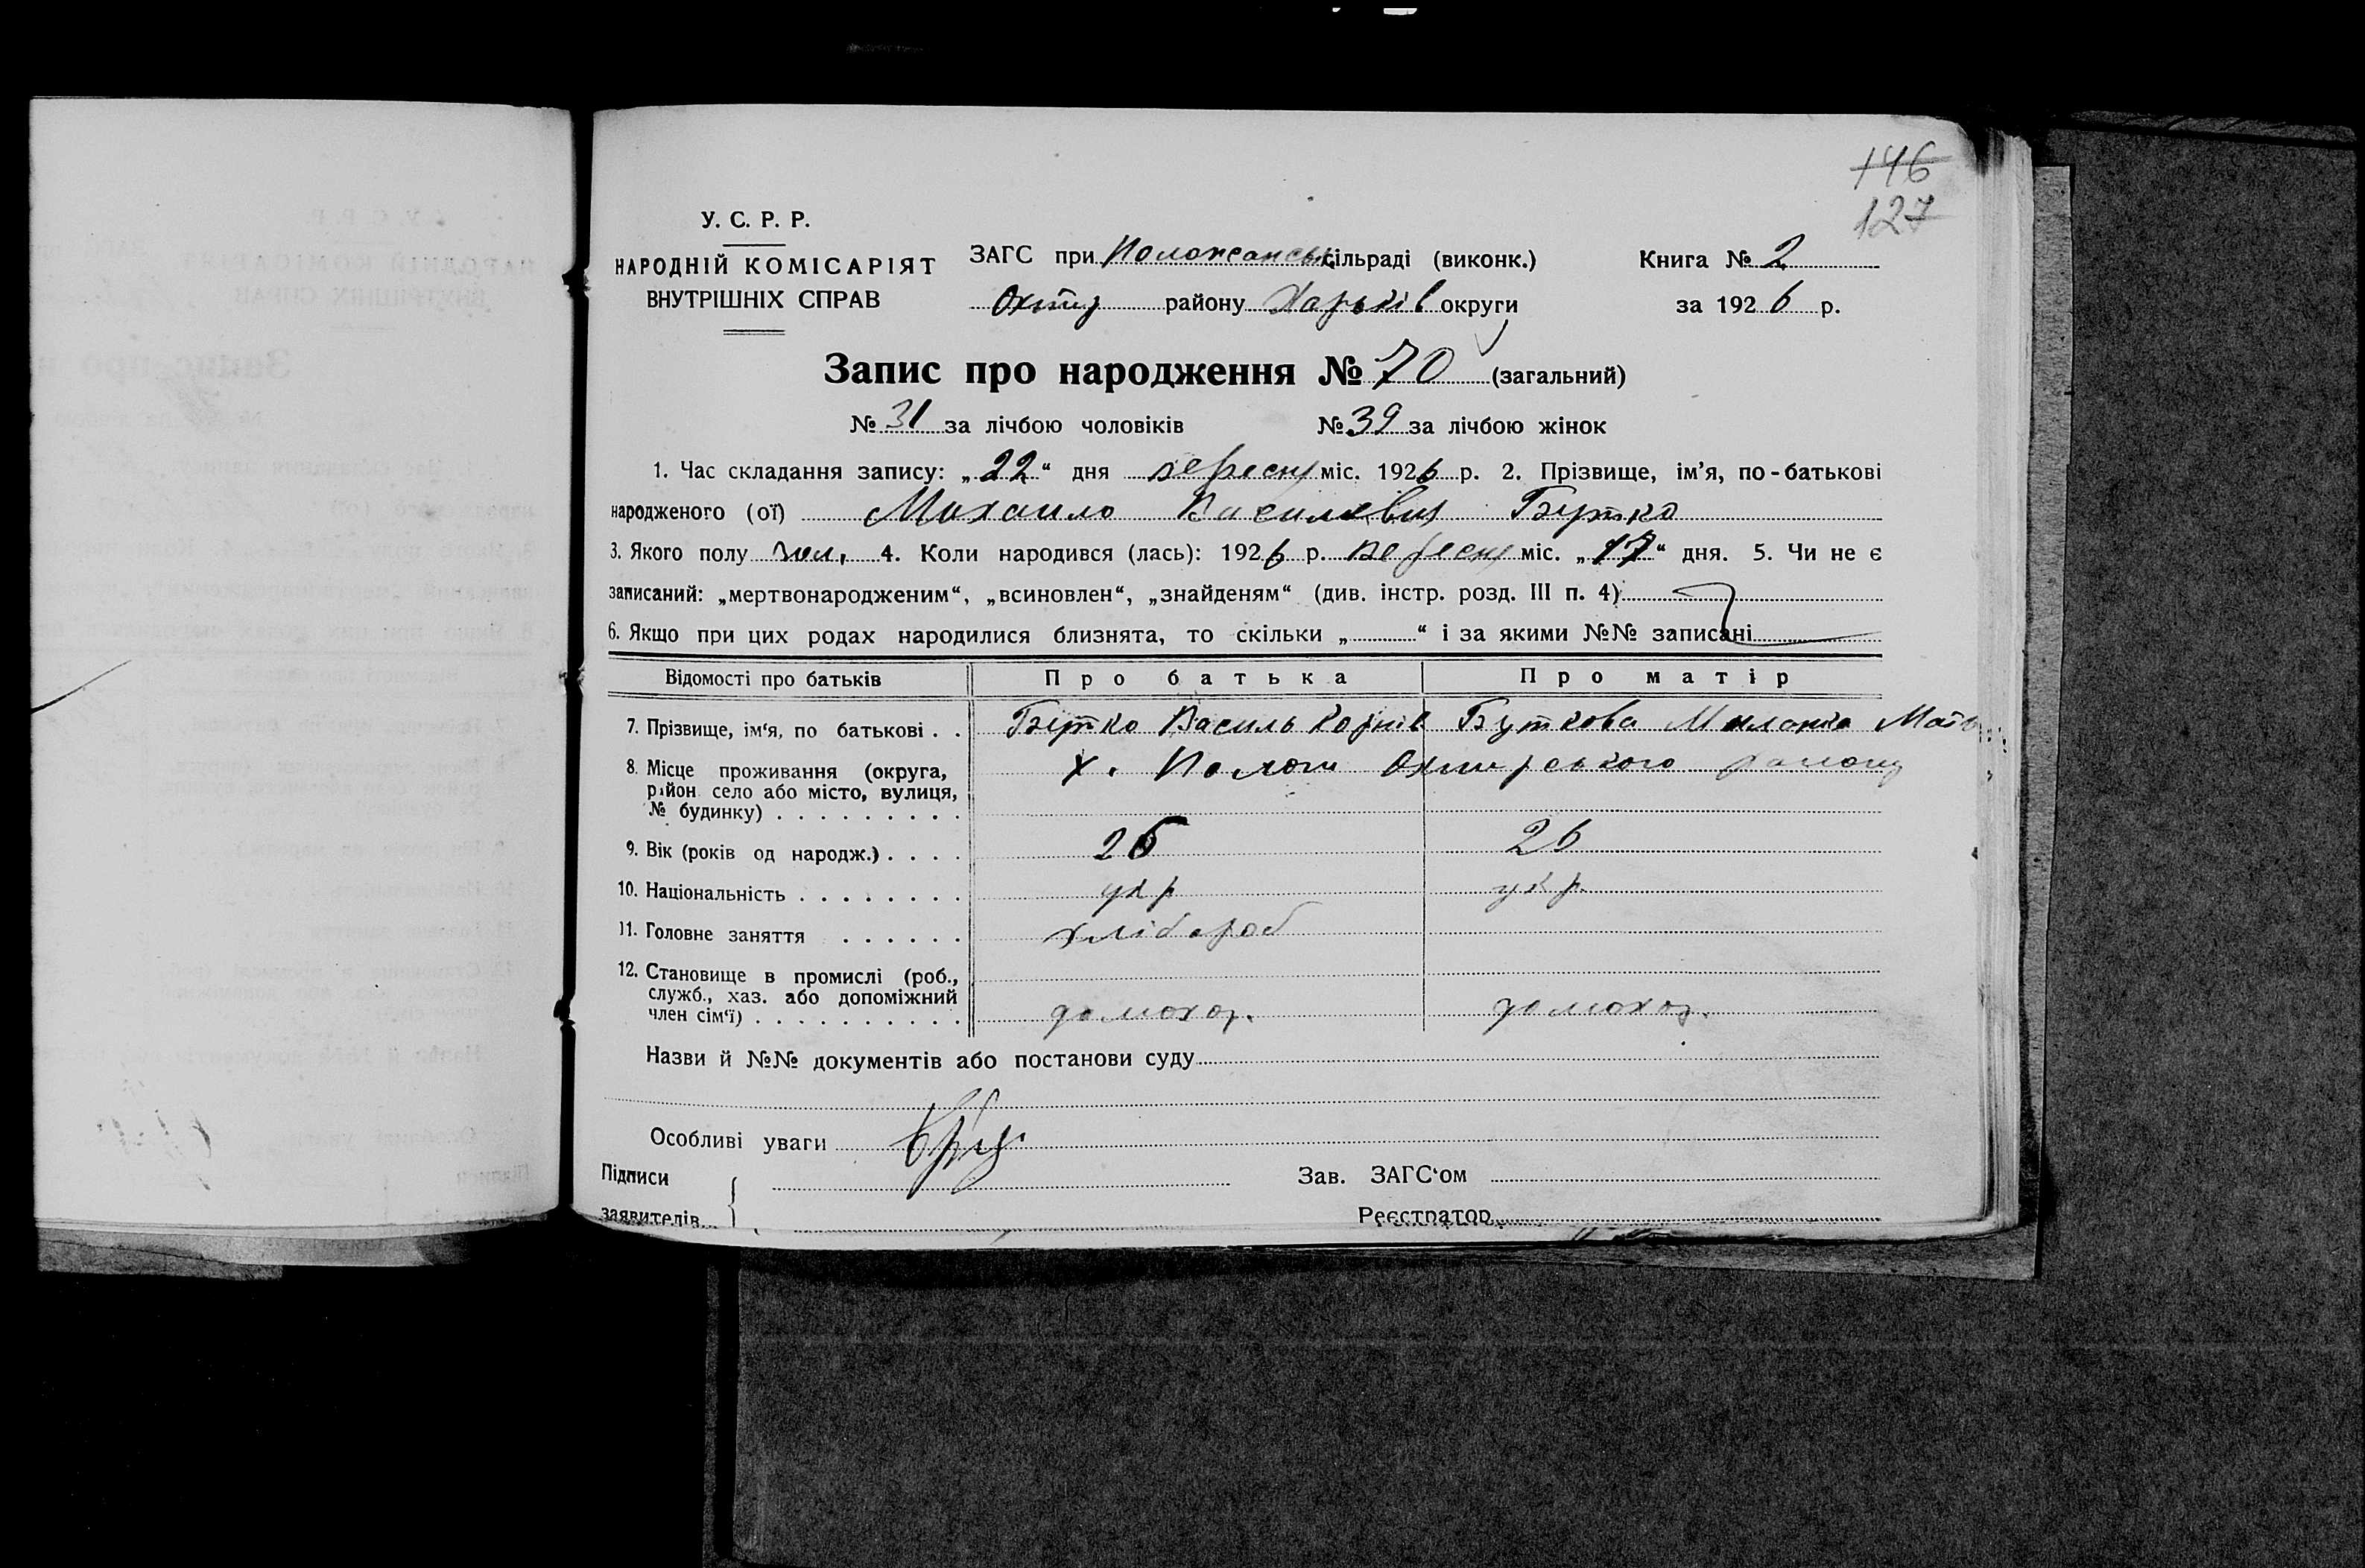 146
127
У. С. Р. Р.
НАРОДНІЙ КОМІСАРІЯТ
ВНУТРІШНІХ СПРАВ
ЗАГС при Положанськ сільраді (виконк.)
Охтир району Харьків округи
Книга № 2
за 1926 р.
Запис про народження № 70 (загальний)
№ 31 за лічбою чоловіків № 39 за лічбою жінок
1. Час складання запису: „22“ дня вересня міс. 1926 р. 2. Прізвище, ім’я, по-батькові
народженого (ої) Михаило Василевич Бутко
3. Якого полу чол. 4. Коли народився (лась): 1926 р. вересня міс. „17“ дня. 5. Чи не є
записаний: „мертвонародженим“, „всиновлен“, „знайденям“ (див. інстр. розд. III п. 4)
6. Якщо при цих родах народилися близнята, то скільки „ “ і за якими №№ записані
Відомості про батьків Про батька Про матір
7. Прізвище, ім‘я, по батькові . . Бутко Василь Корнів Буткова Миланка
8. Місце проживання (округа, х. Пологи Охтирського району
район село або місто, вулиця,
№ будинку) . . . . . . . . .
9. Вік (років од народж.) . . . . 26 26
10. Національність . . . . . . . . укр укр.
11. Головне заняття . . . . . . хлібороб
12. Становище в промислі (роб.,
служб., хаз. або допоміжний
член сім‘ї) . . . . . . . . . . домохоз. домохоз.
Назви й №№ документів або постанови суду
Особливі уваги
Підписи
заявителів
Зав. ЗАГС‘ом
Реєстратор